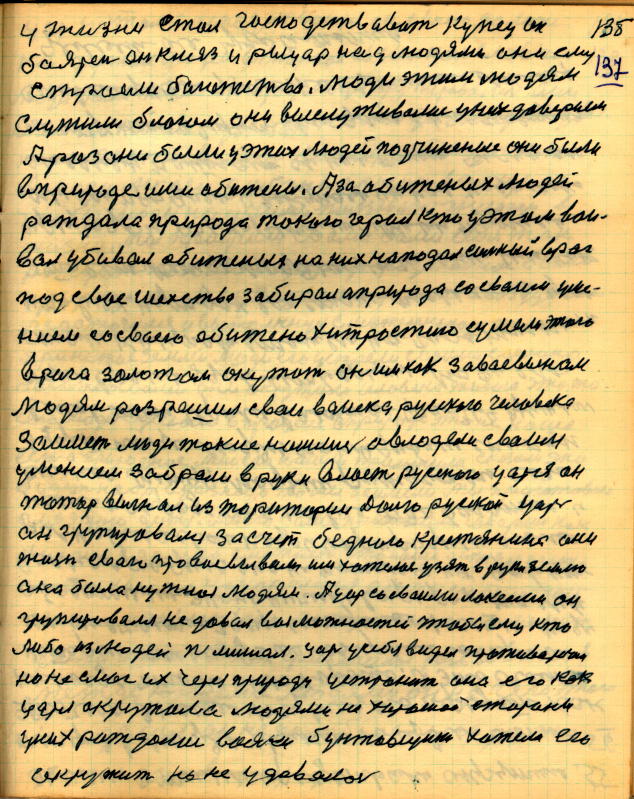 у жизни стал господствават купец он 136
баярен он князь и рыцар над людями они ему 137
строели богатство. Люди этим людям
служили благом они выслуживалис у них доверием
А раз они были у этих людей подчиненые они были
в природе ими обижены. А за обиженых людей
раждала природа такого героя кто у этом вои-
вал убивал обиженых на них нападал сильный враг
под свое шевство забирал а природа со сваим уме-
нием со сваею обижено хитростию сумели этого
врага золотом окутат он им как заваеваном
людям розрашил сваи ваиска руского человека
заимет люди такие нашлис овлодели сваим
умением забрали в руки власт руского царя он
татар выгнал из ториторий Долго руской цар
он групировался за счет бедного крестянина они
жизн сваю провоевывали им хателос узят в руки землю
она была нужная людям. А цар со сваими локеями он
групировался не давал возможностей чтобы ему кто
либо из людей п мишал. Цар у себя видел противоречия
но не смог их через природу устранит она его как
царя окружала людями не харошой стораны
у них раждалис всяки бунтовщики хатели его
окружит но не удавалос